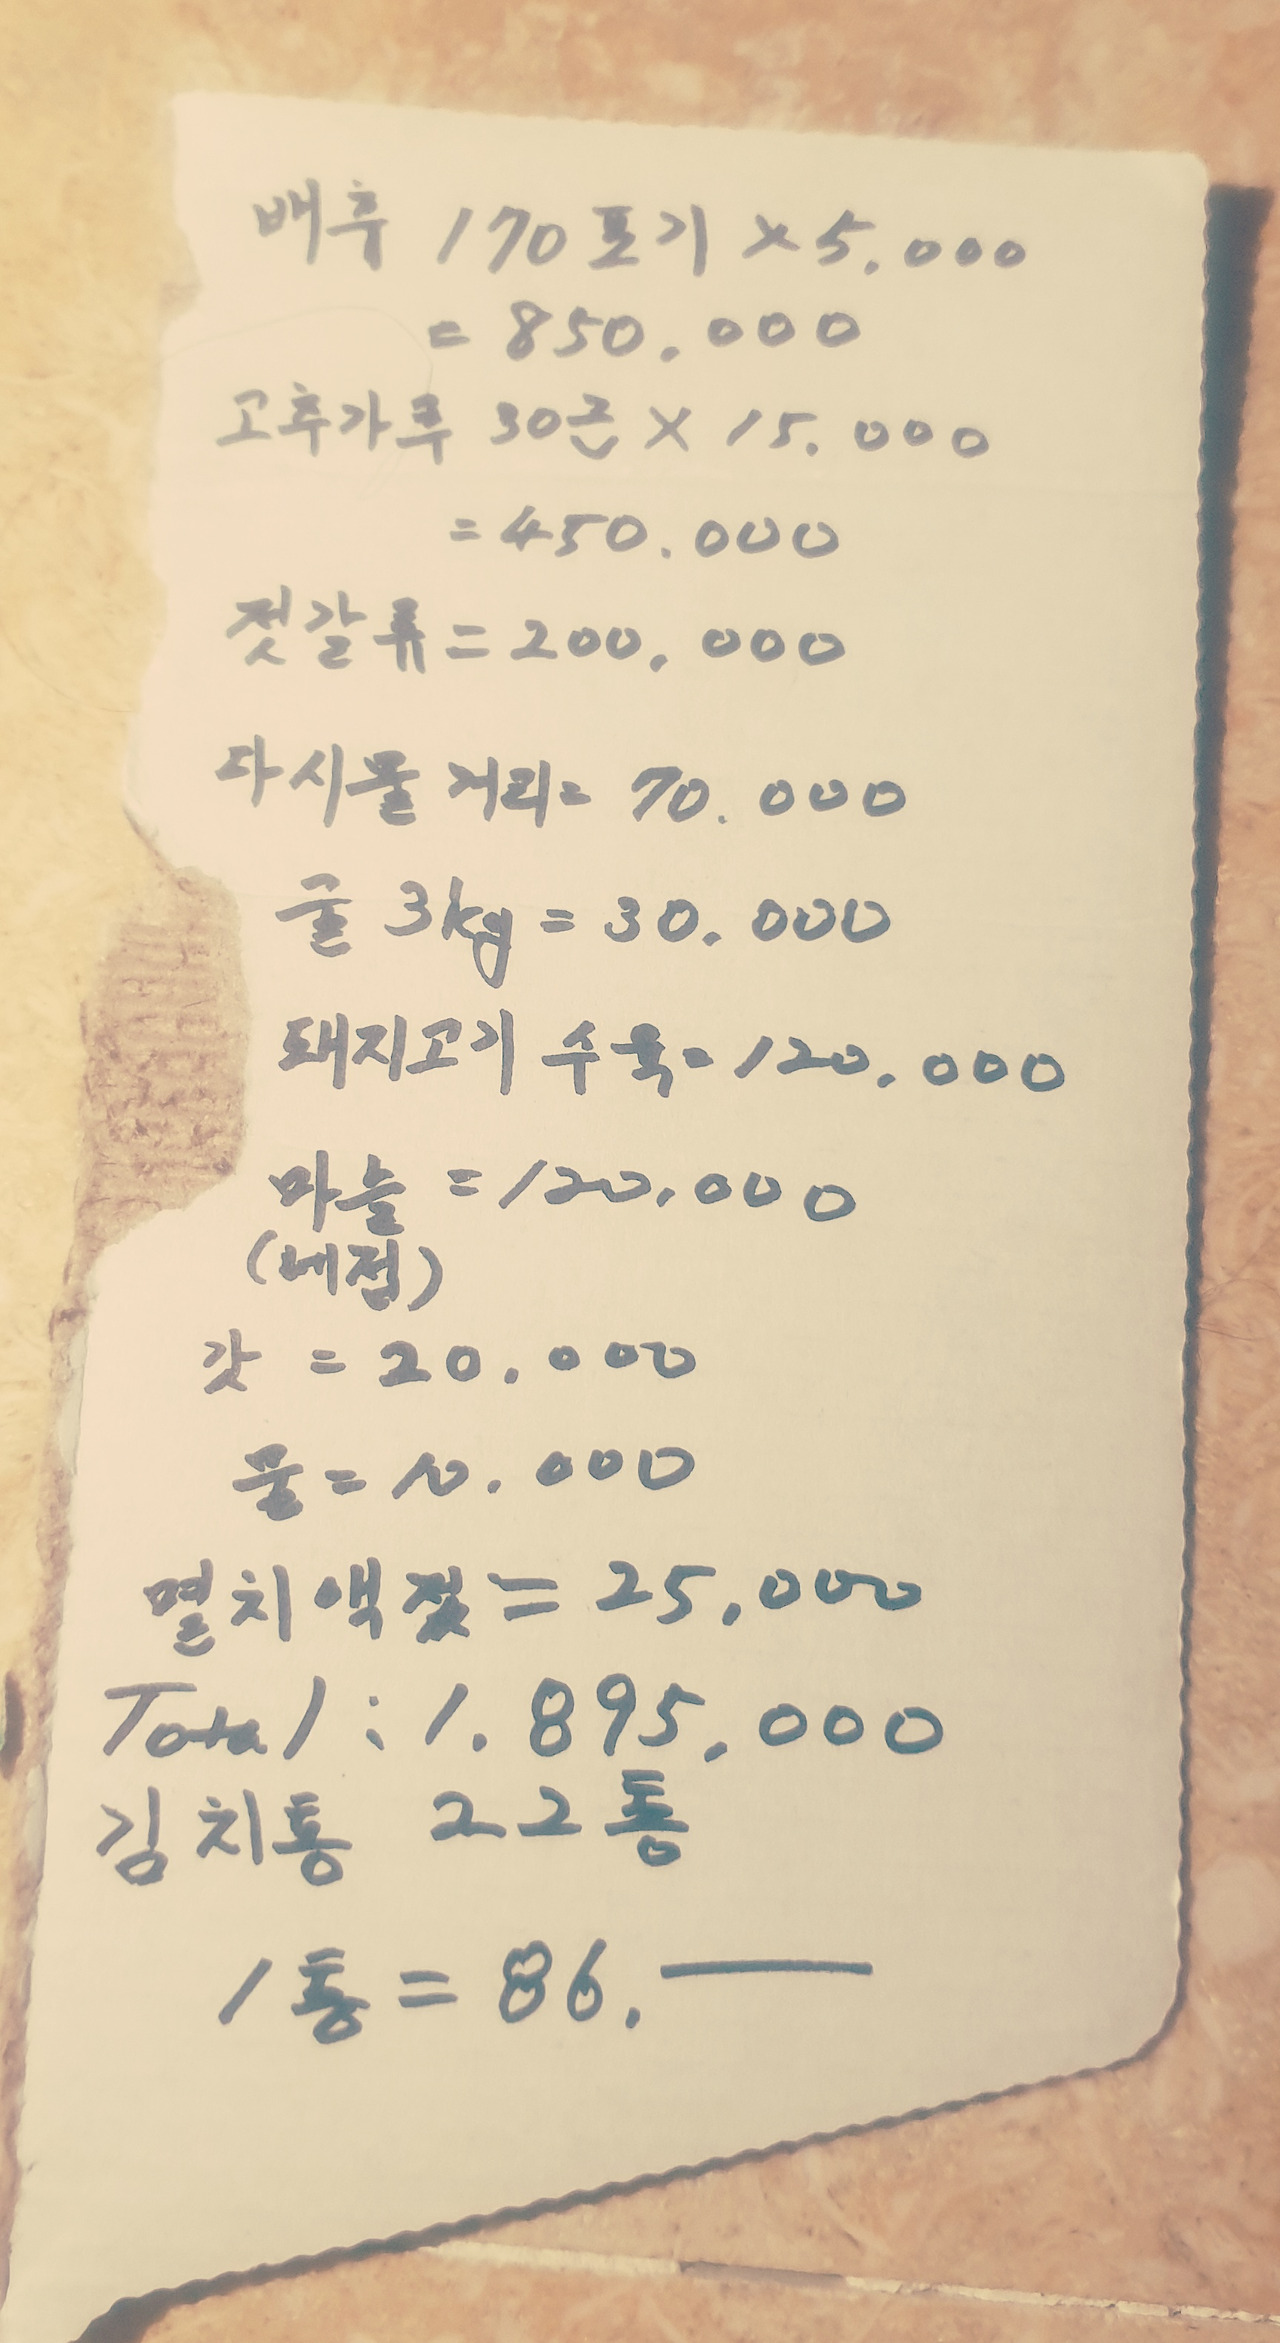 배추 170포기 × 5.000
= 850.000
고추가루 30근 × 15.000
= 450.000
젓갈류 = 200,000
다시물 거리 = 70.000
굴 3kg = 30.000
돼지고기 수육 = 120,000
마늘 = 120,000
(네접)
갓 = 20.000
굴 = 10.000
멸치액젓 = 25,000
Total : 1.895,000
김치통 22통
1통 = 86.